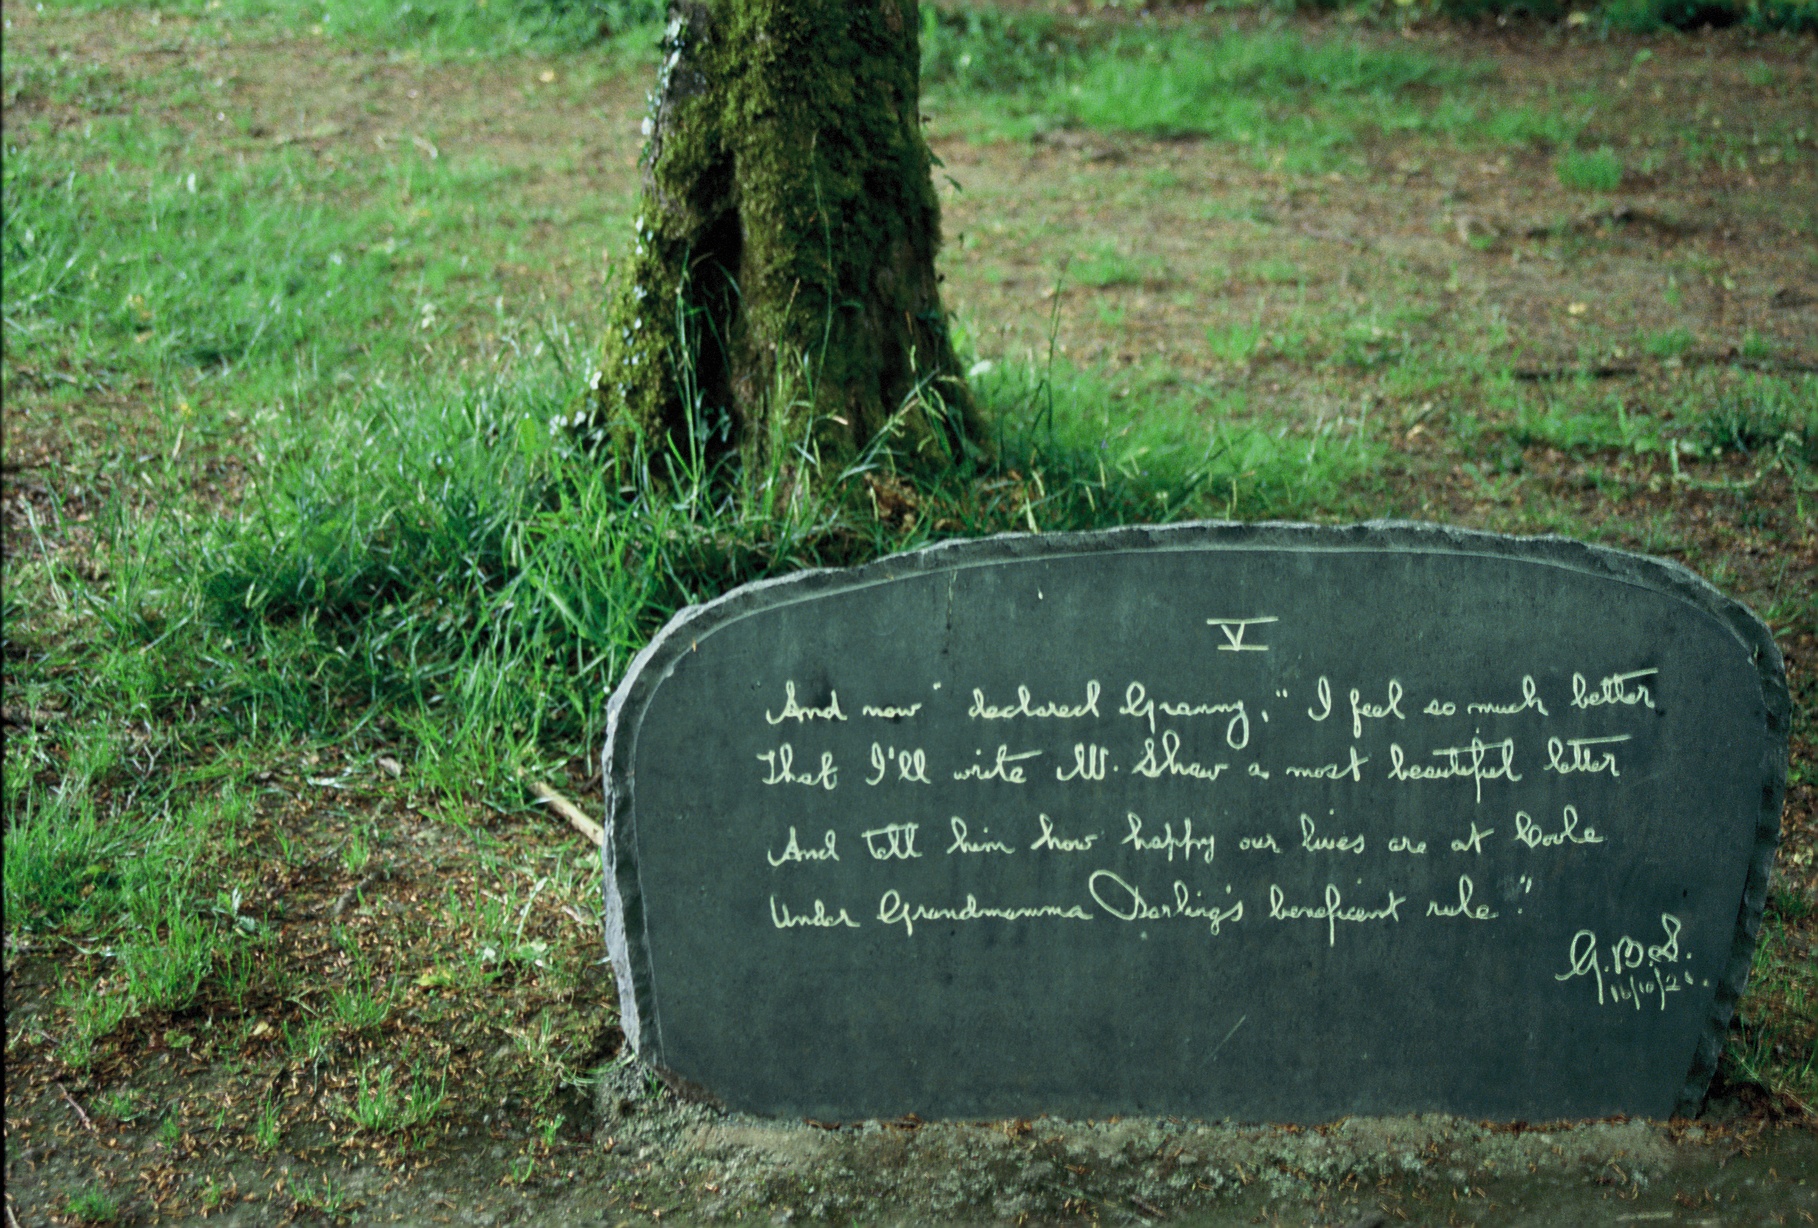 V
And now" declared Granny, "I feel so much better
That I'll write Mr. Shaw a most beautiful letter
And tell him how happy our lives are at Coole
Under Grandmamma Darling's beneficent rule."
G.B.S.